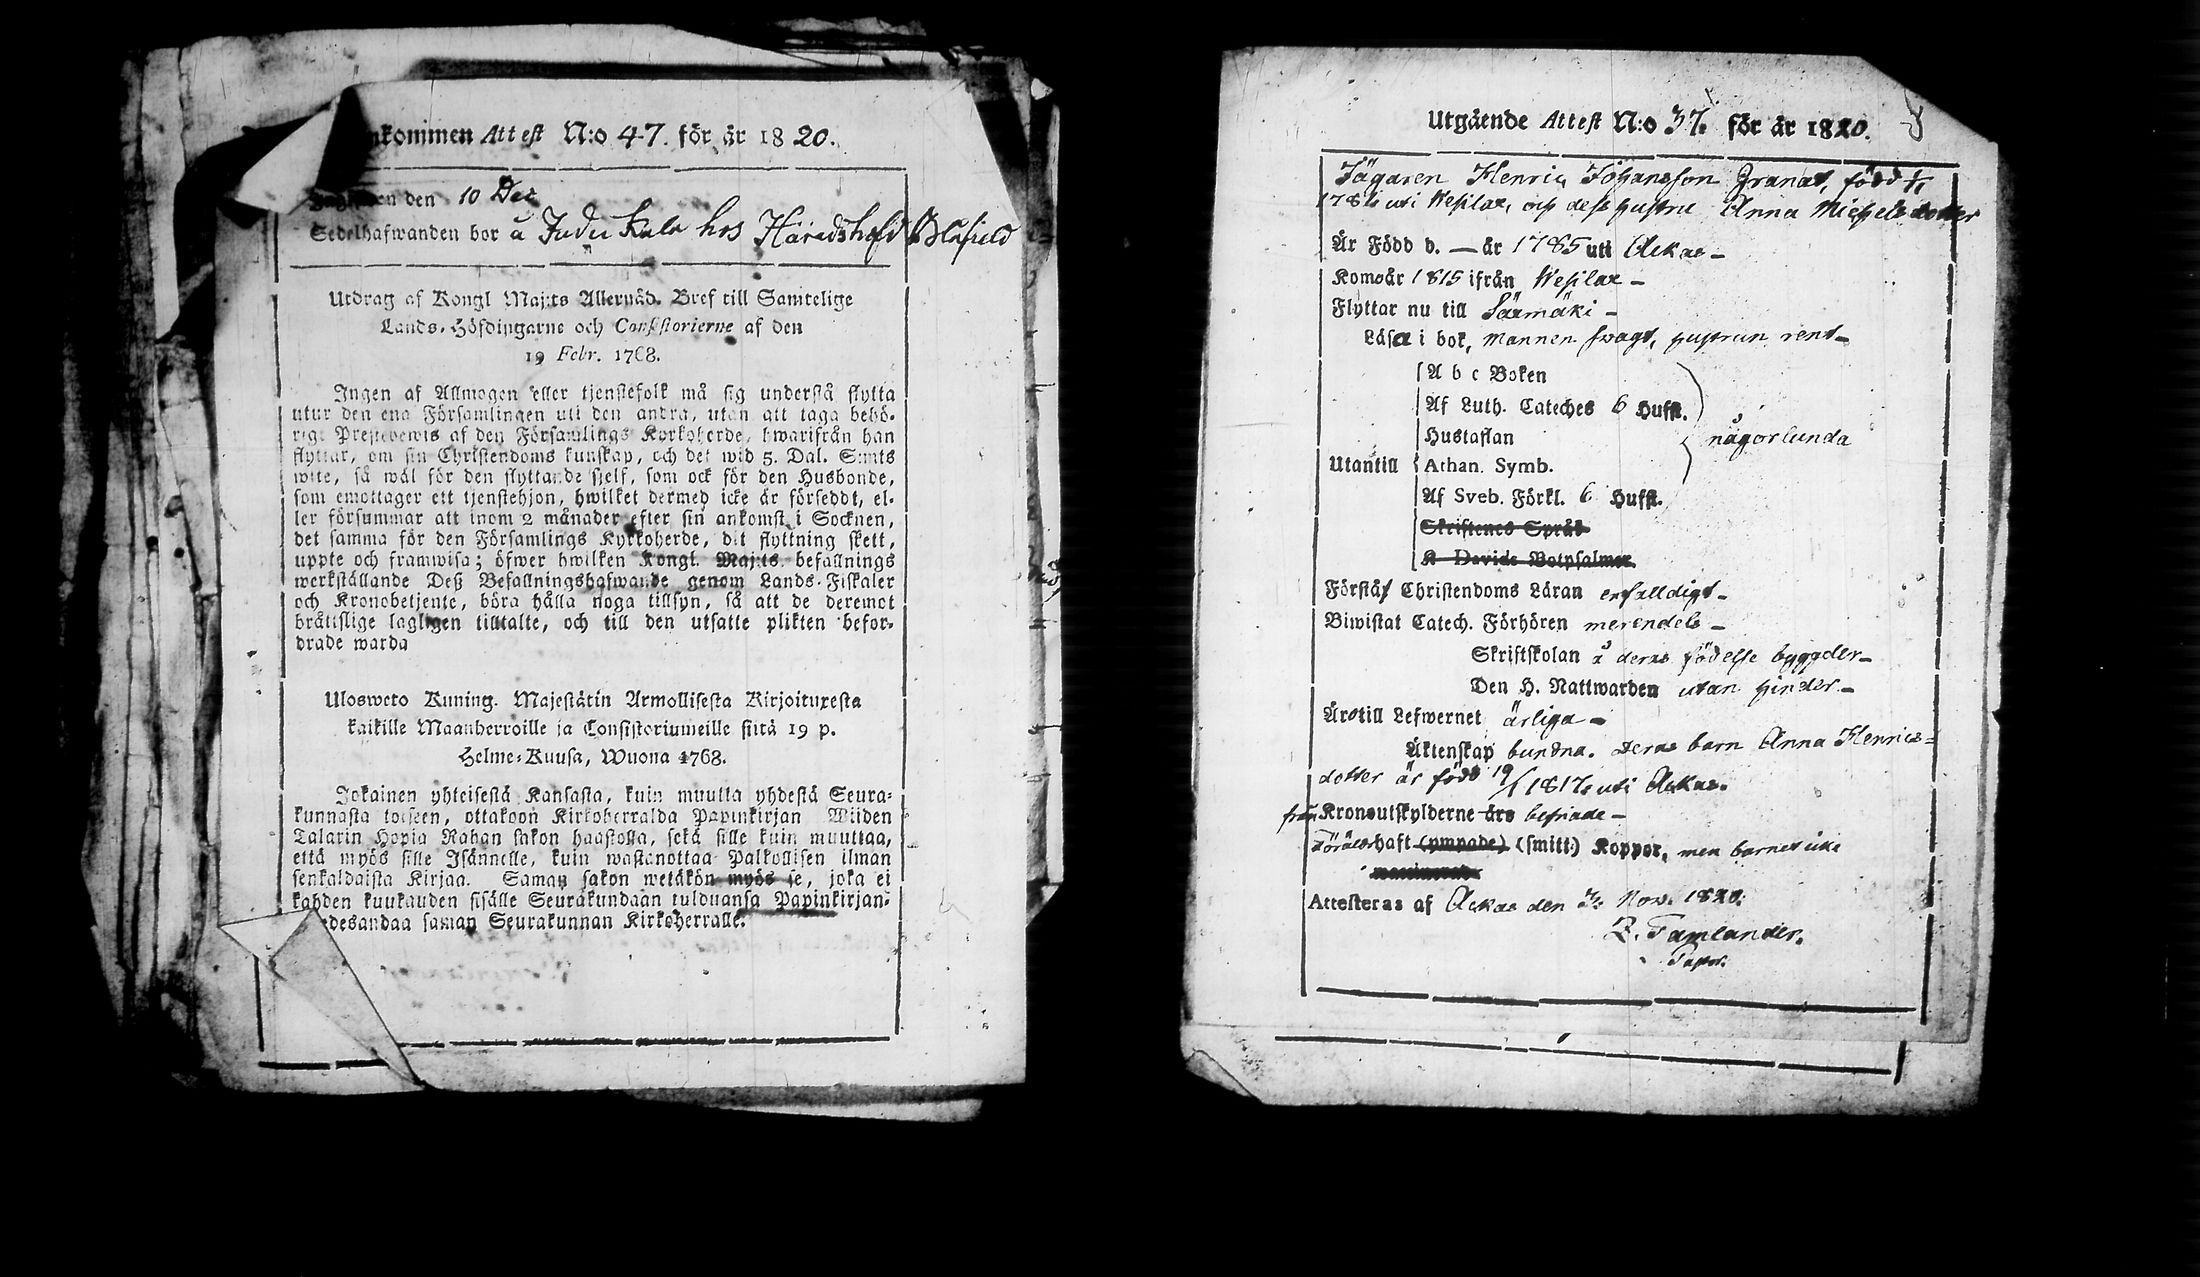 nkommen Attest N:o 47. för år 1820.
den 10 Dec
Sedelhafwanden bor å hos
Utdrag af Kongl Maj:ts Allernåd. Bref till Samtelige
Lands-Höfdingarne och Consistorierne af den
19 Febr. 1768.
Ingen af Allmogen eller tjenstefolk må sig understå flytta
utur den ena Församlingen uti den andra, utan att taga behö-
rigt Prestebewis af den Församlings Kyrkoherde, hwarifrån han
flyttar, om sin Christendoms kunskap, och det wid 5. Dal. S:mts
wite, så wäl för den flyttande sjelf, som ock för den Husbonde,
som emottager ett tjenstehjon, hwilket dermed icke är förseddt, el-
ler försummar att inom 2 månader efter sin ankomst i Socknen,
det samma för den Församlings Kyrkoherde, dit flyttning skett,
uppte och framwisa; öfwer hwilken Kongl. Maj:ts befallnings
werkställande Deß Befallningshafwande genom Lands-Fiskaler
och Kronobetjente, böra hålla noga tillsyn, så att de deremot
bråttslige lagligen tilltalte, och till den utsatte plikten befor-
drade warda
Ulosweto Kuning. Majestätin Armollisesta Kirjoituxesta
kaikille Maanherroille ja Consistoriumeille siitä 19 p.
Helme-Kuusa, Wuona 1768.
Jokainen yhteisestä Kansasta, kuin muutta yhdestä Seura-
kunnasta toiseen, ottakoon Kirkoherralda Papinkirjan Wiiden
Talarin Hopia Rahan sakon haastolla, sekä sille kuin muuttaa,
että myös sille Isännelle, kuin wastanottaa Palkollisen ilman
senkaldaista Kirjaa. Saman sakon wetäkön myös se, joka ei
kahden kuukauden sisälle Seurakundaan tulduansa Papinkirjan-
desandaa saman Seurakunnan Kirkoherralle.
Utgående Attest N:o 37. för år 1820.
Jägaren Henric Johansson Granat, född
uti Wesilax, och dess hustru Anna Michelsdotter
Är Född d. — år 1785 uti Ackas –
Kom år 1815 ifrån Wesilax –
Flyttar nu till Säxmäki –
Läsa i bok, mannen swagt, hustrun rent –
A b c Boken
Af Luth. Cateches 6 Hufst.
Hustaflan någorlunda
Utantill Athan. Symb.
Af Sveb. Förkl. 6 Hufst.
Skriftenes Språk
K Davids Botpsalmer
Förstå Christendoms Läran enfalldigt –
Biwistat Catech. Förhören merendels –
Skriftskolan å deras födelse bygder –
Den H. Nattwarden utan hinder –
Äro till Lefwernet ärliga –
Äktenskap bundna. Deras barn Anna Henrics-
dotter är född uti Ackas.
från Kronoutskylderne äro befriade –
haft (ympade) (smitt:) Koppor, men barnet icke
vaccinerad
Attesteras af Ackas den 3. Nov. 1820.
Z. Famlander.
Pastor.